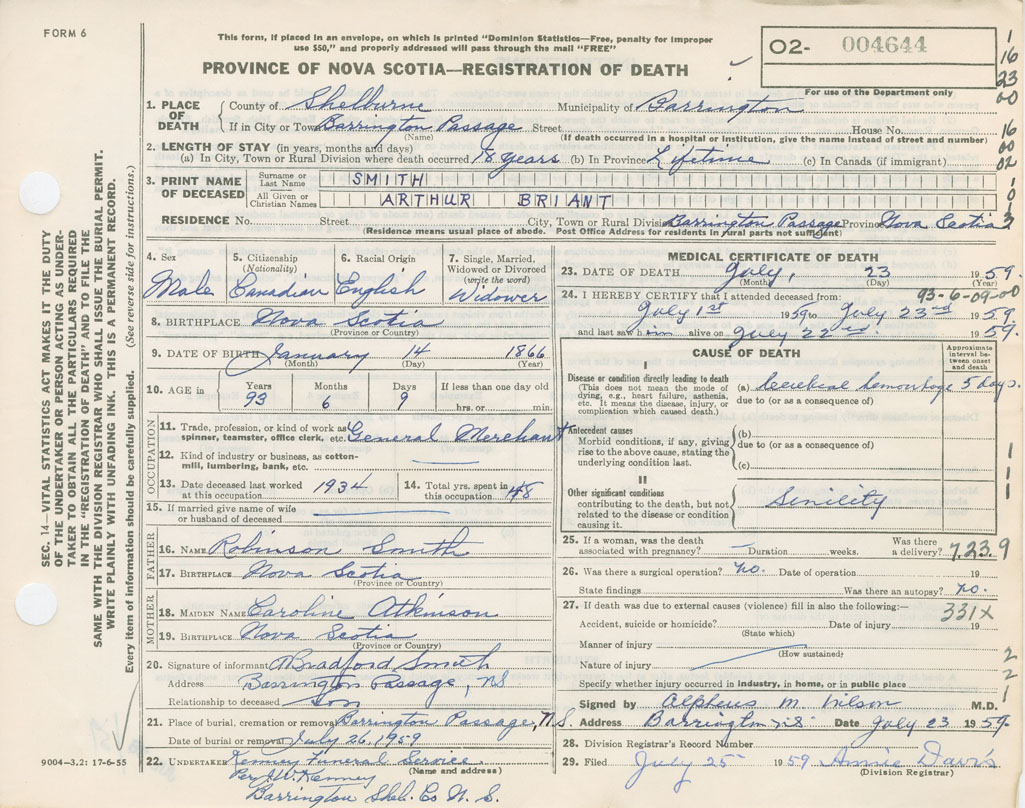 FORM 6
This form, if placed in an envelope, on which is printed "Dominion Statistics—Free, penalty for improper
use $50," and properly addressed will pass through the mail "FREE"
PROVINCE OF NOVA SCOTIA—REGISTRATION OF DEATH
O2- 004644
For use of the Department only
1
16
23
00
16
00
02
1
0
1
3
1. PLACE OF DEATH County of Shelburne Municipality of Barrington
If in City or Town Barrington Passage Street House No.
(Name) (If death occurred in a hospital or institution, give the name instead of street and number)
2. LENGTH OF STAY (in years, months and days)
(a) In City, Town or Rural Division where death occurred 18 years (b) In Province Lifetime (c) In Canada (if immigrant)
3. PRINT NAME OF DECEASED
Surname or Last Name SMITH
All Given or Christian Names ARTHUR BRIANT
RESIDENCE No. Street City, Town or Rural Division Barrington Passage Province Nova Scotia
(Residence means usual place of abode. Post Office Address for residents in rural parts not sufficient)
4. Sex Male
5. Citizenship (Nationality) Canadian
6. Racial Origin English
7. Single, Married, Widowed or Divorced (write the word) Widower
8. BIRTHPLACE Nova Scotia
(Province or Country)
9. DATE OF BIRTH January 14 1866
(Month) (Day) (Year)
10. AGE in Years Months Days If less than one day old
93 6 9 hrs. or min.
OCCUPATION
11. Trade, profession, or kind of work as spinner, teamster, office clerk, etc. General Merchant
12. Kind of industry or business, as cotton-mill, lumbering, bank, etc.
13. Date deceased last worked at this occupation 1934
14. Total yrs. spent in this occupation 48
15. If married give name of wife or husband of deceased
FATHER
16. NAME Robinson Smith
17. BIRTHPLACE Nova Scotia
(Province or Country)
MOTHER
18. MAIDEN NAME Caroline Atkinson
19. BIRTHPLACE Nova Scotia
(Province or Country)
20. Signature of informant Bradford Smith
Address Barrington Passage, NS
Relationship to deceased Son
21. Place of burial, cremation or removal Barrington Passage, N.S.
Date of burial or removal July 26, 1959
22. UNDERTAKER Kenney Funeral Service
(Name and address)
Per J.W. Kenney
Barrington Shel. Co N. S.
MEDICAL CERTIFICATE OF DEATH
23. DATE OF DEATH July, 23 1959.
(Month) (Day) (Year)
93-6-09-00
24. I HEREBY CERTIFY that I attended deceased from:
July 1st 1959 to July 23rd 1959
and last saw him alive on July 22nd 1959.
CAUSE OF DEATH
Approximate interval between onset and death
I
Disease or condition directly leading to death
(This does not mean the mode of dying, e.g., heart failure, asthenia, etc. It means the disease, injury, or complication which caused death.)
(a) Cerebral hemorrhage 5 days.
due to (or as a consequence of)
Antecedent causes
Morbid conditions, if any, giving rise to the above cause, stating the underlying condition last.
(b)
due to (or as a consequence of)
(c)
II
Other significant conditions
contributing to the death, but not related to the disease or condition causing it.
Senility
1
1
1
25. If a woman, was the death associated with pregnancy? Duration weeks. Was there a delivery?
7.23.9
26. Was there a surgical operation? no. Date of operation 19
State findings Was there an autopsy? no.
27. If death was due to external causes (violence) fill in also the following:—
331X
Accident, suicide or homicide? Date of injury 19
(State which)
Manner of injury
(How sustained)
Nature of injury
Specify whether injury occurred in industry, in home, or in public place
2
2
1
Signed by Alpheus M. Wilson M.D.
Address Barrington NS Date July 23 1959
28. Division Registrar's Record Number
29. Filed July 25 1959 Annie Davis
(Division Registrar)
SEC. 14—VITAL STATISTICS ACT MAKES IT THE DUTY
OF THE UNDERTAKER OR PERSON ACTING AS UNDER-
TAKER TO OBTAIN ALL THE PARTICULARS REQUIRED
IN THE "REGISTRATION OF DEATH" AND TO FILE THE
SAME WITH THE DIVISION REGISTRAR WHO SHALL ISSUE THE BURIAL PERMIT.
WRITE PLAINLY WITH UNFADING INK. THIS IS A PERMANENT RECORD.
Every item of information should be carefully supplied. (See reverse side for instructions.)
9004-3.2: 17-6-55